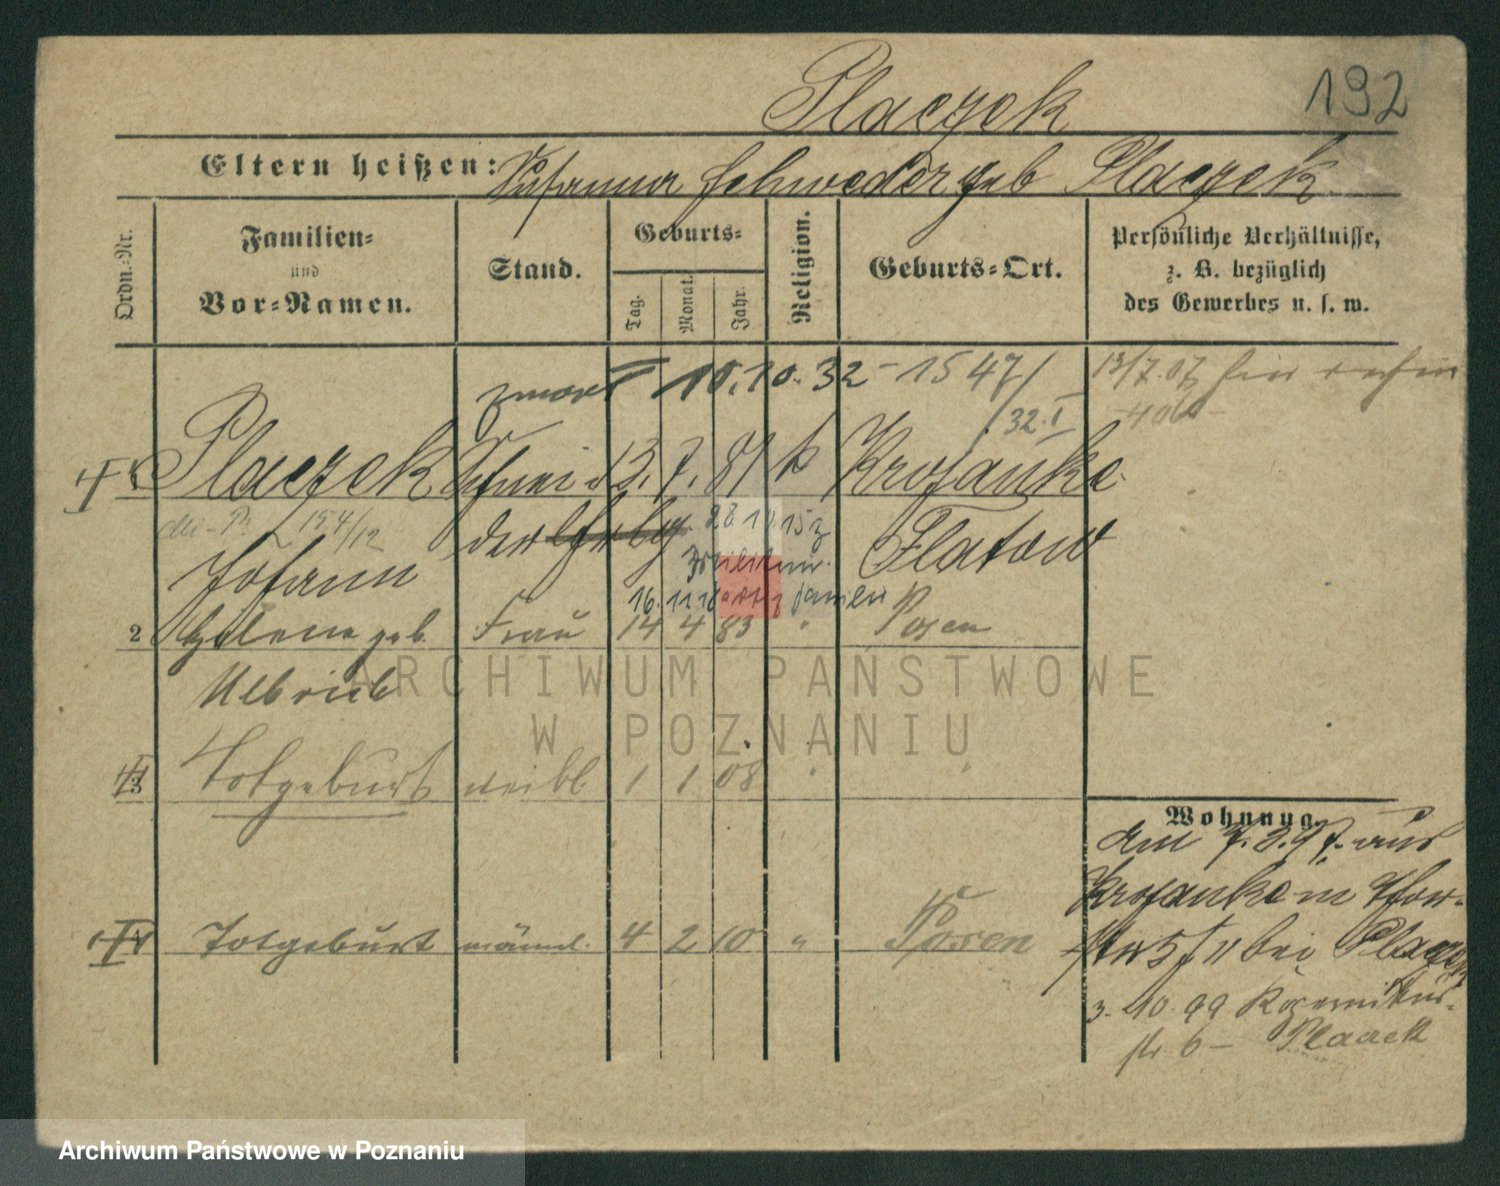 Placzek
192
Eltern heißen: Susanna Schweder geb Placzek
Ordn.-Nr.
Familien-
und
Vor-Namen.
Stand.
Geburts-
Tag.
Monat.
Jahr.
Religion.
Geburts-Ort.
Persönliche Verhältnisse,
z. B. bezüglich
des Gewerbes u. s. w.
zmarł 10.10.32 - 1547/
32.I
13/7.07
1 Placzek Schnei 13. 7. 81 k Krojanke
154/12
der Flatow
28.10.15
Johann
16.11.18
2 Helene geb. Frau 14 4 83 " Posen
Ulbrich
ARCHIWUM PAŃSTWOWE
W POZNANIU
3 Totgeburt weibl 1 1 08 "
Wohnung.
am 7.2.97. aus
Krojanke
4 Totgeburt männl. 4 2 10 " Posen
bei Placzek
3.10.99
str 6 -
Archiwum Państwowe w Poznaniu